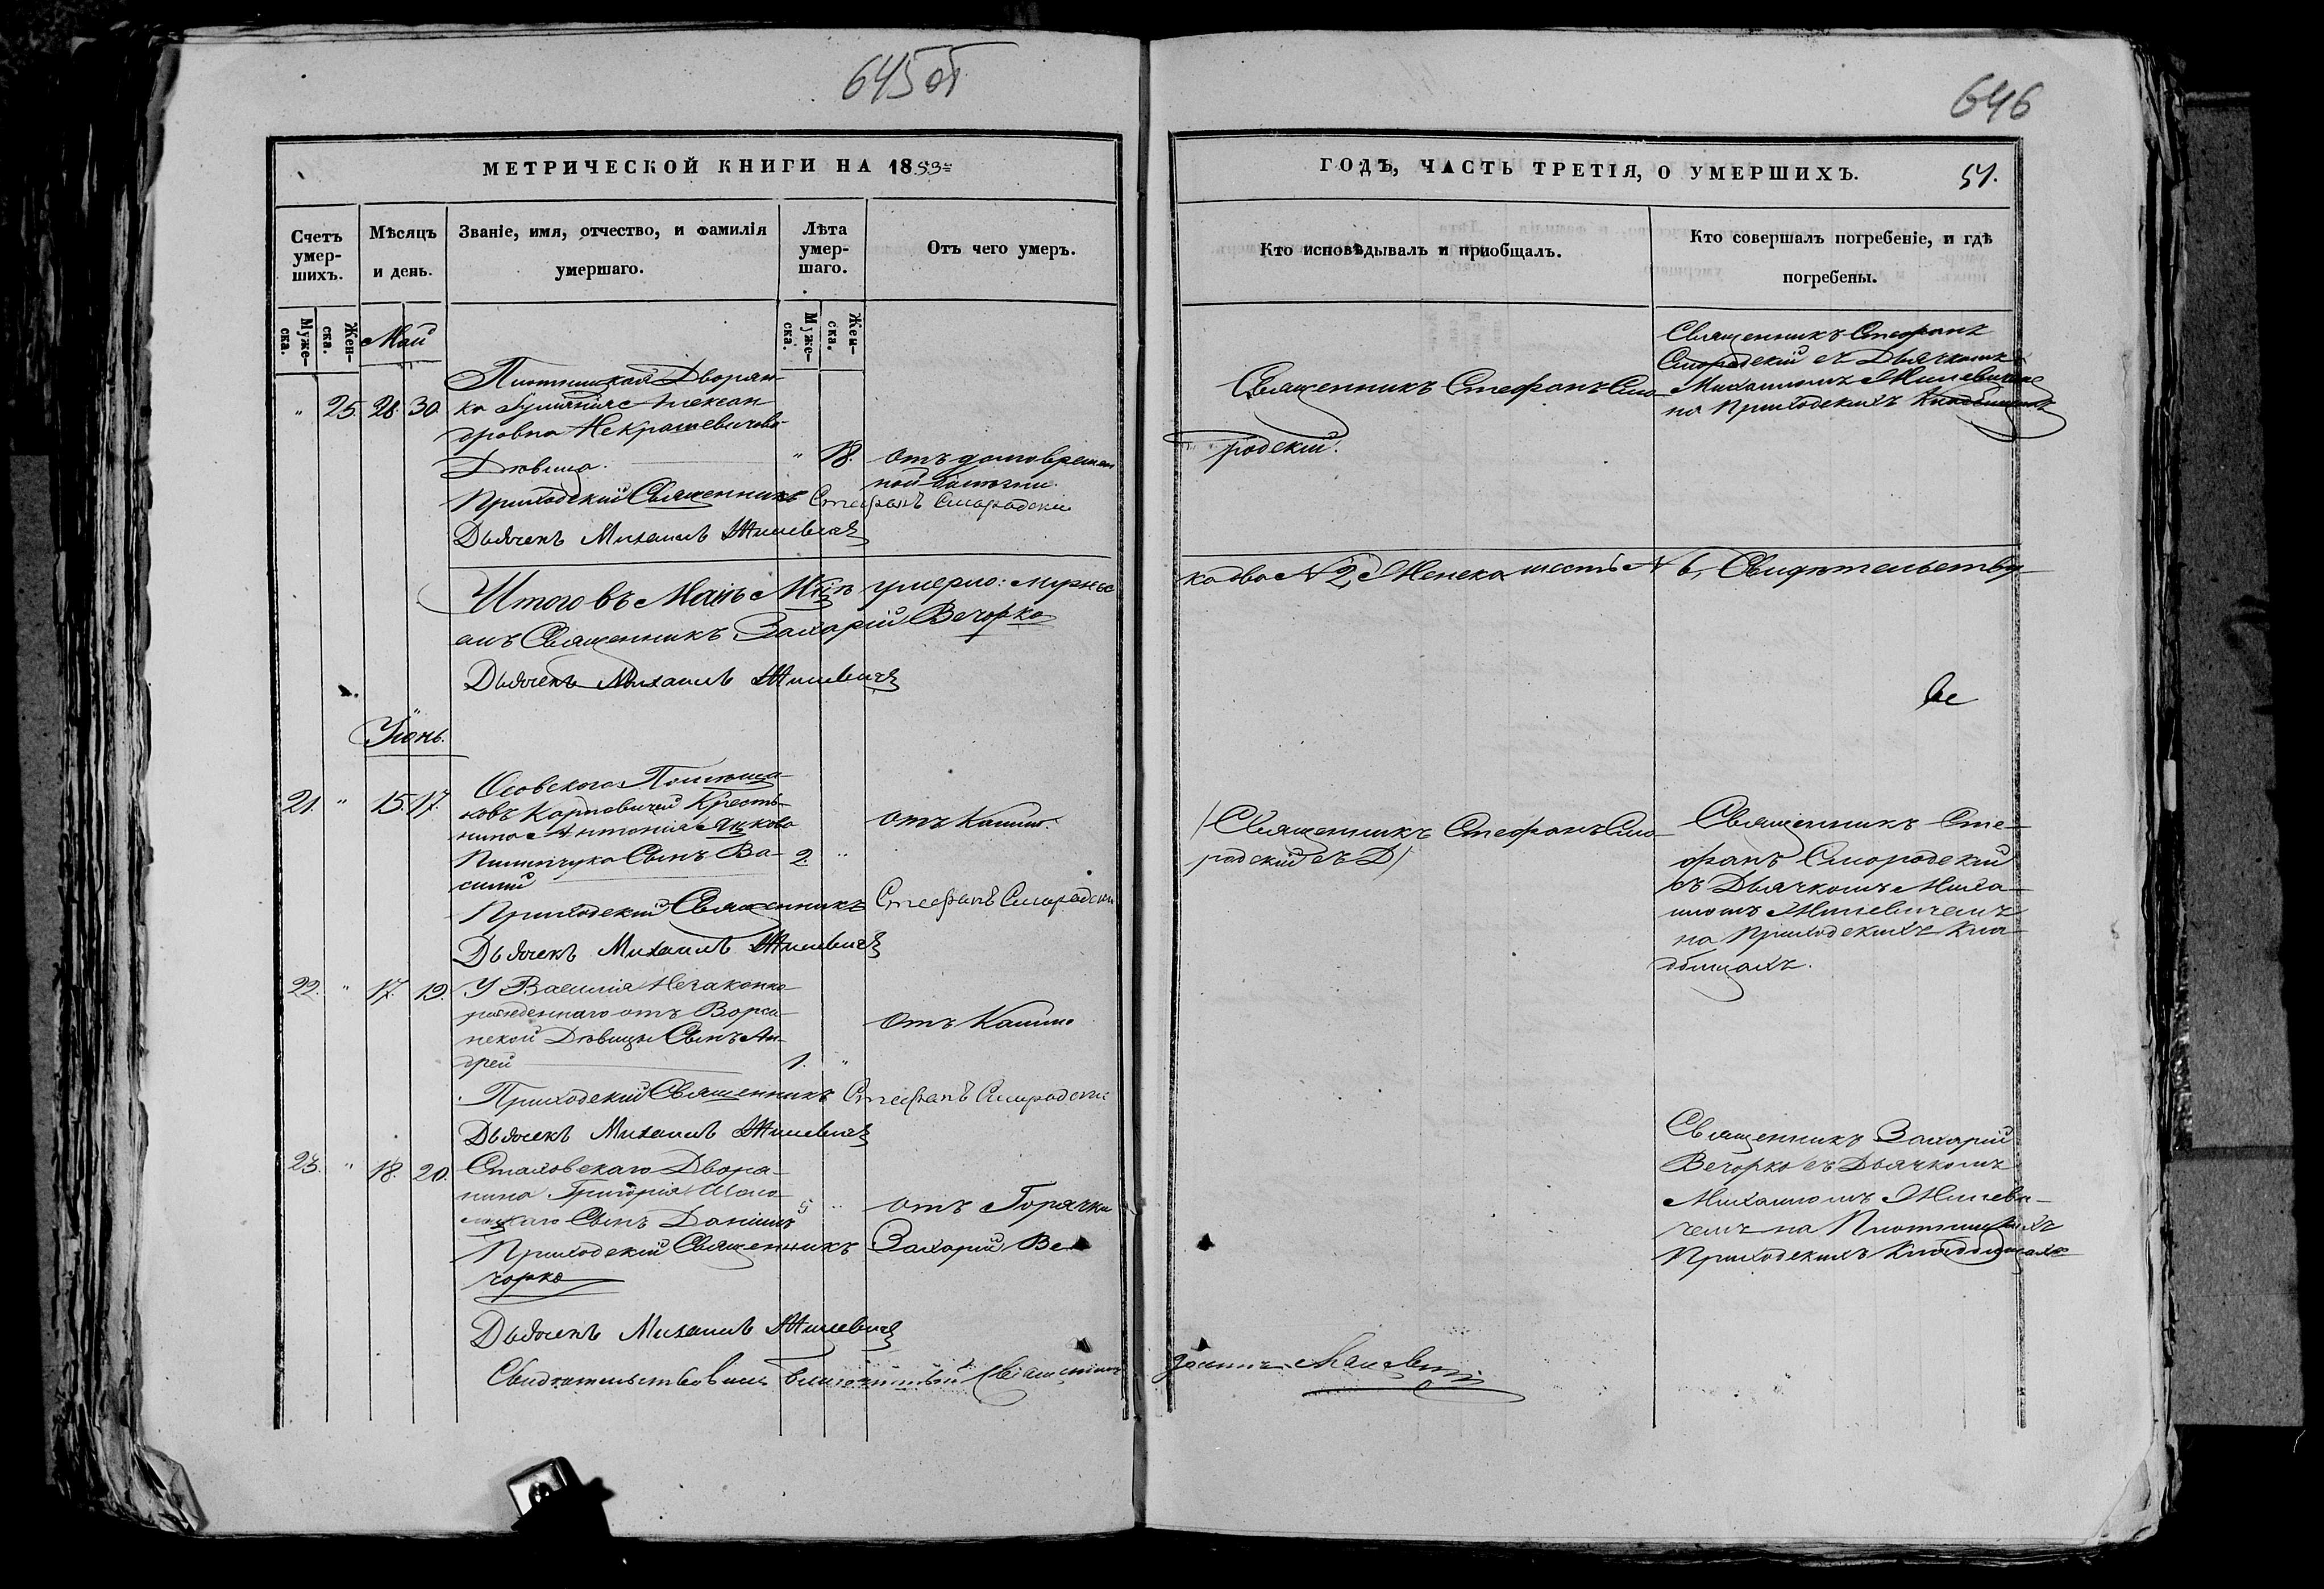 645 об
646
МЕТРИЧЕСКОЙ КНИГИ НА 1853
ГОДЪ, ЧАСТЬ ТРЕТІЯ, О УМЕРШИХЪ.
51.
Счетъ умер-шихъ.
Мѣсяцъ и день.
Званіе, имя, отчество, и фамилія умершаго.
Лѣта умер-шаго.
Отъ чего умеръ.
Кто исповѣдывалъ и пріобщалъ.
Кто совершалъ погребеніе, и гдѣ погребены.
Муже-ска.
Жен-ска.
Муже-ска.
Жен-ска.
Май
" 25. 28. 30
Дворян-
ка Алексан
дровна Некрашевичева
Дѣвица. " 18. отъ долговремен
ной болѣзни.
Приходскій Священникъ Стефанъ Смородскій
Дьячекъ Михаилъ Жилевичъ
Священникъ Стефанъ Смо-
родскій.
Священникъ Стефанъ
Смородскій съ Дьячкомъ
Михаиломъ Жилевичемъ
на Приходскихъ Кладбищахъ
Итого въ Маѣ Мцѣ умерло: мужес
ка два N 2, Женска шесть N 6, Свидѣтельству
емъ Священникъ Захарій Вечорко
Дьячекъ Михаилъ Жилевичъ
Іюнь.
21. " 15. 17.
Осовскаго Помѣщи-
ковъ Карповичей Крестья-
нина Антонія Яцкова
Пилипчука Сынъ Ва- 2. "
силій
отъ Кашлю.
Приходскій Священникъ Стефанъ Смородскій
Дьячекъ Михаилъ Жилевичъ
/Священникъ Стефанъ Смо-
родскій съ Д/
Священникъ Сте-
фанъ Смородскій
съ Дьячкомъ Миха-
иломъ Жилевичемъ
на Приходскихъ Кла-
дбищахъ.
22. " 17. 19.
У Василія Незаконно
рожденнаго отъ Ворса-
нской Дѣвицы Сынъ Ан-
дрей 1. "
отъ Кашлю
Приходскій Священникъ Стефанъ Смородскій
Дьячекъ Михаилъ Жилевичъ
23. " 18. 20.
Стаховскаго Дворя-
нина Григорія
Сынъ Даніилъ "
отъ Горячки
Приходскій Священникъ Захарій Ве-
чорко
Дьячекъ Михаилъ Жилевичъ
Священникъ Захарій
Вечорко съ Дьячкомъ
Михаиломъ Жилеви-
чемъ на
Приходскихъ Кладбищахъ
Свидѣтельствовалъ благочинный Священникъ